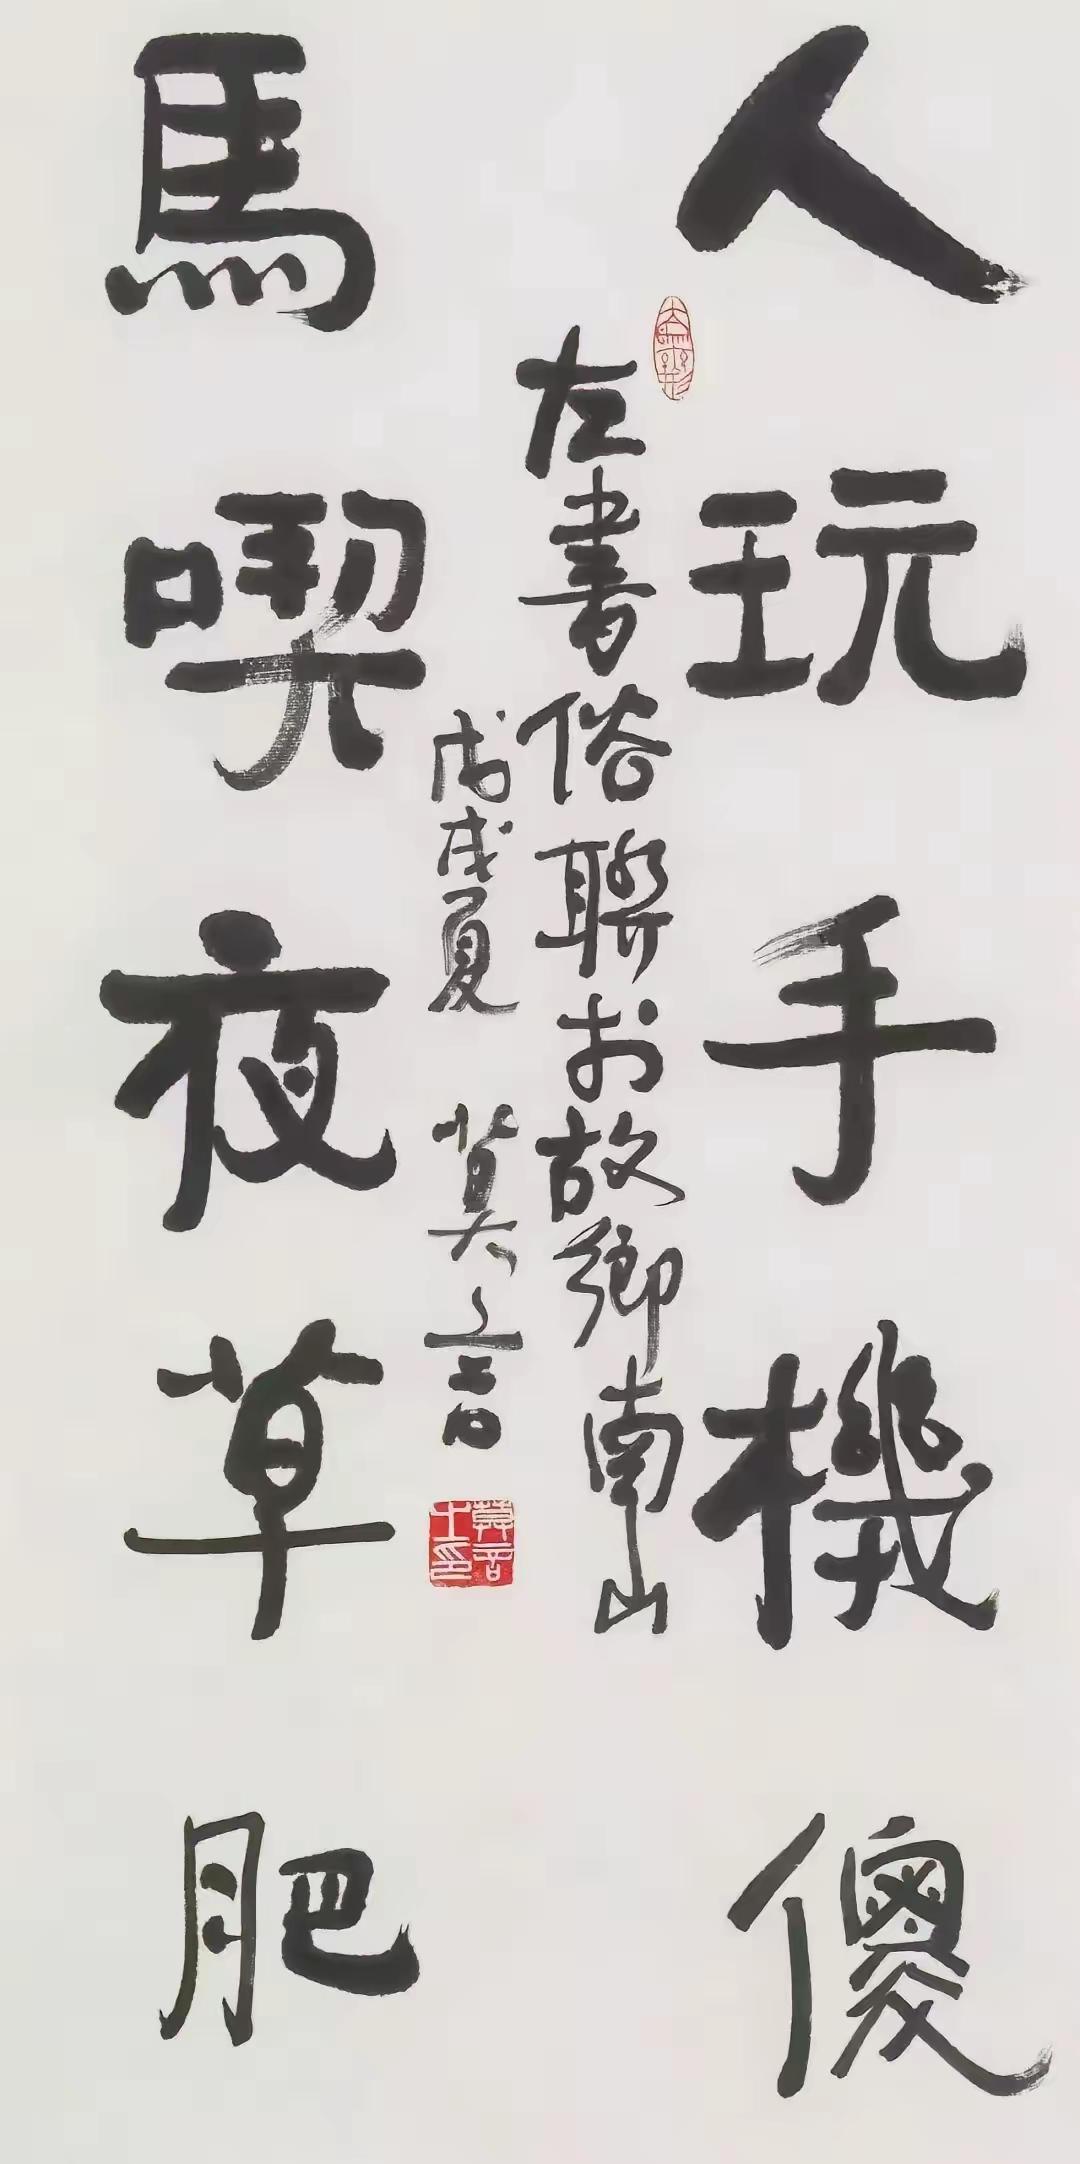 人玩手機傻
左書俗聯於故鄉南山
戊戌夏 莫言
馬喫夜草肥
莫言之印